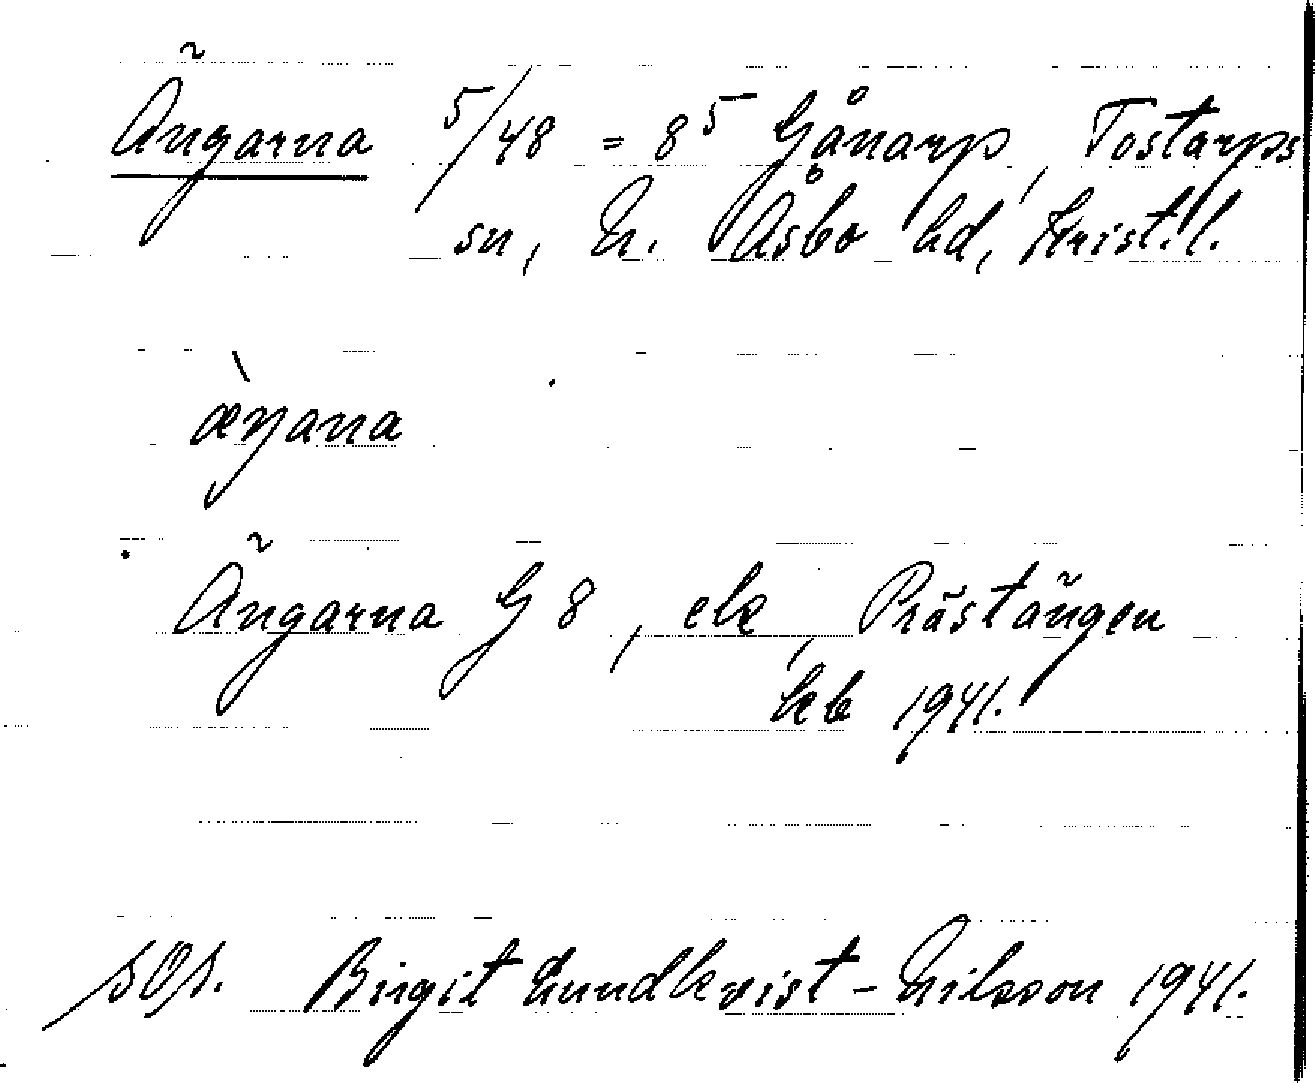 Ängarna 5/48 = 8⁵ Gånarp, Tostarps
sn, N. Åsbo hd, Krist. l.
æ̀ŋana
Ängarna G 8, ek, Prästängen
kb 1941.
SOS. Birgit Lundkvist-Nilsson 1941.